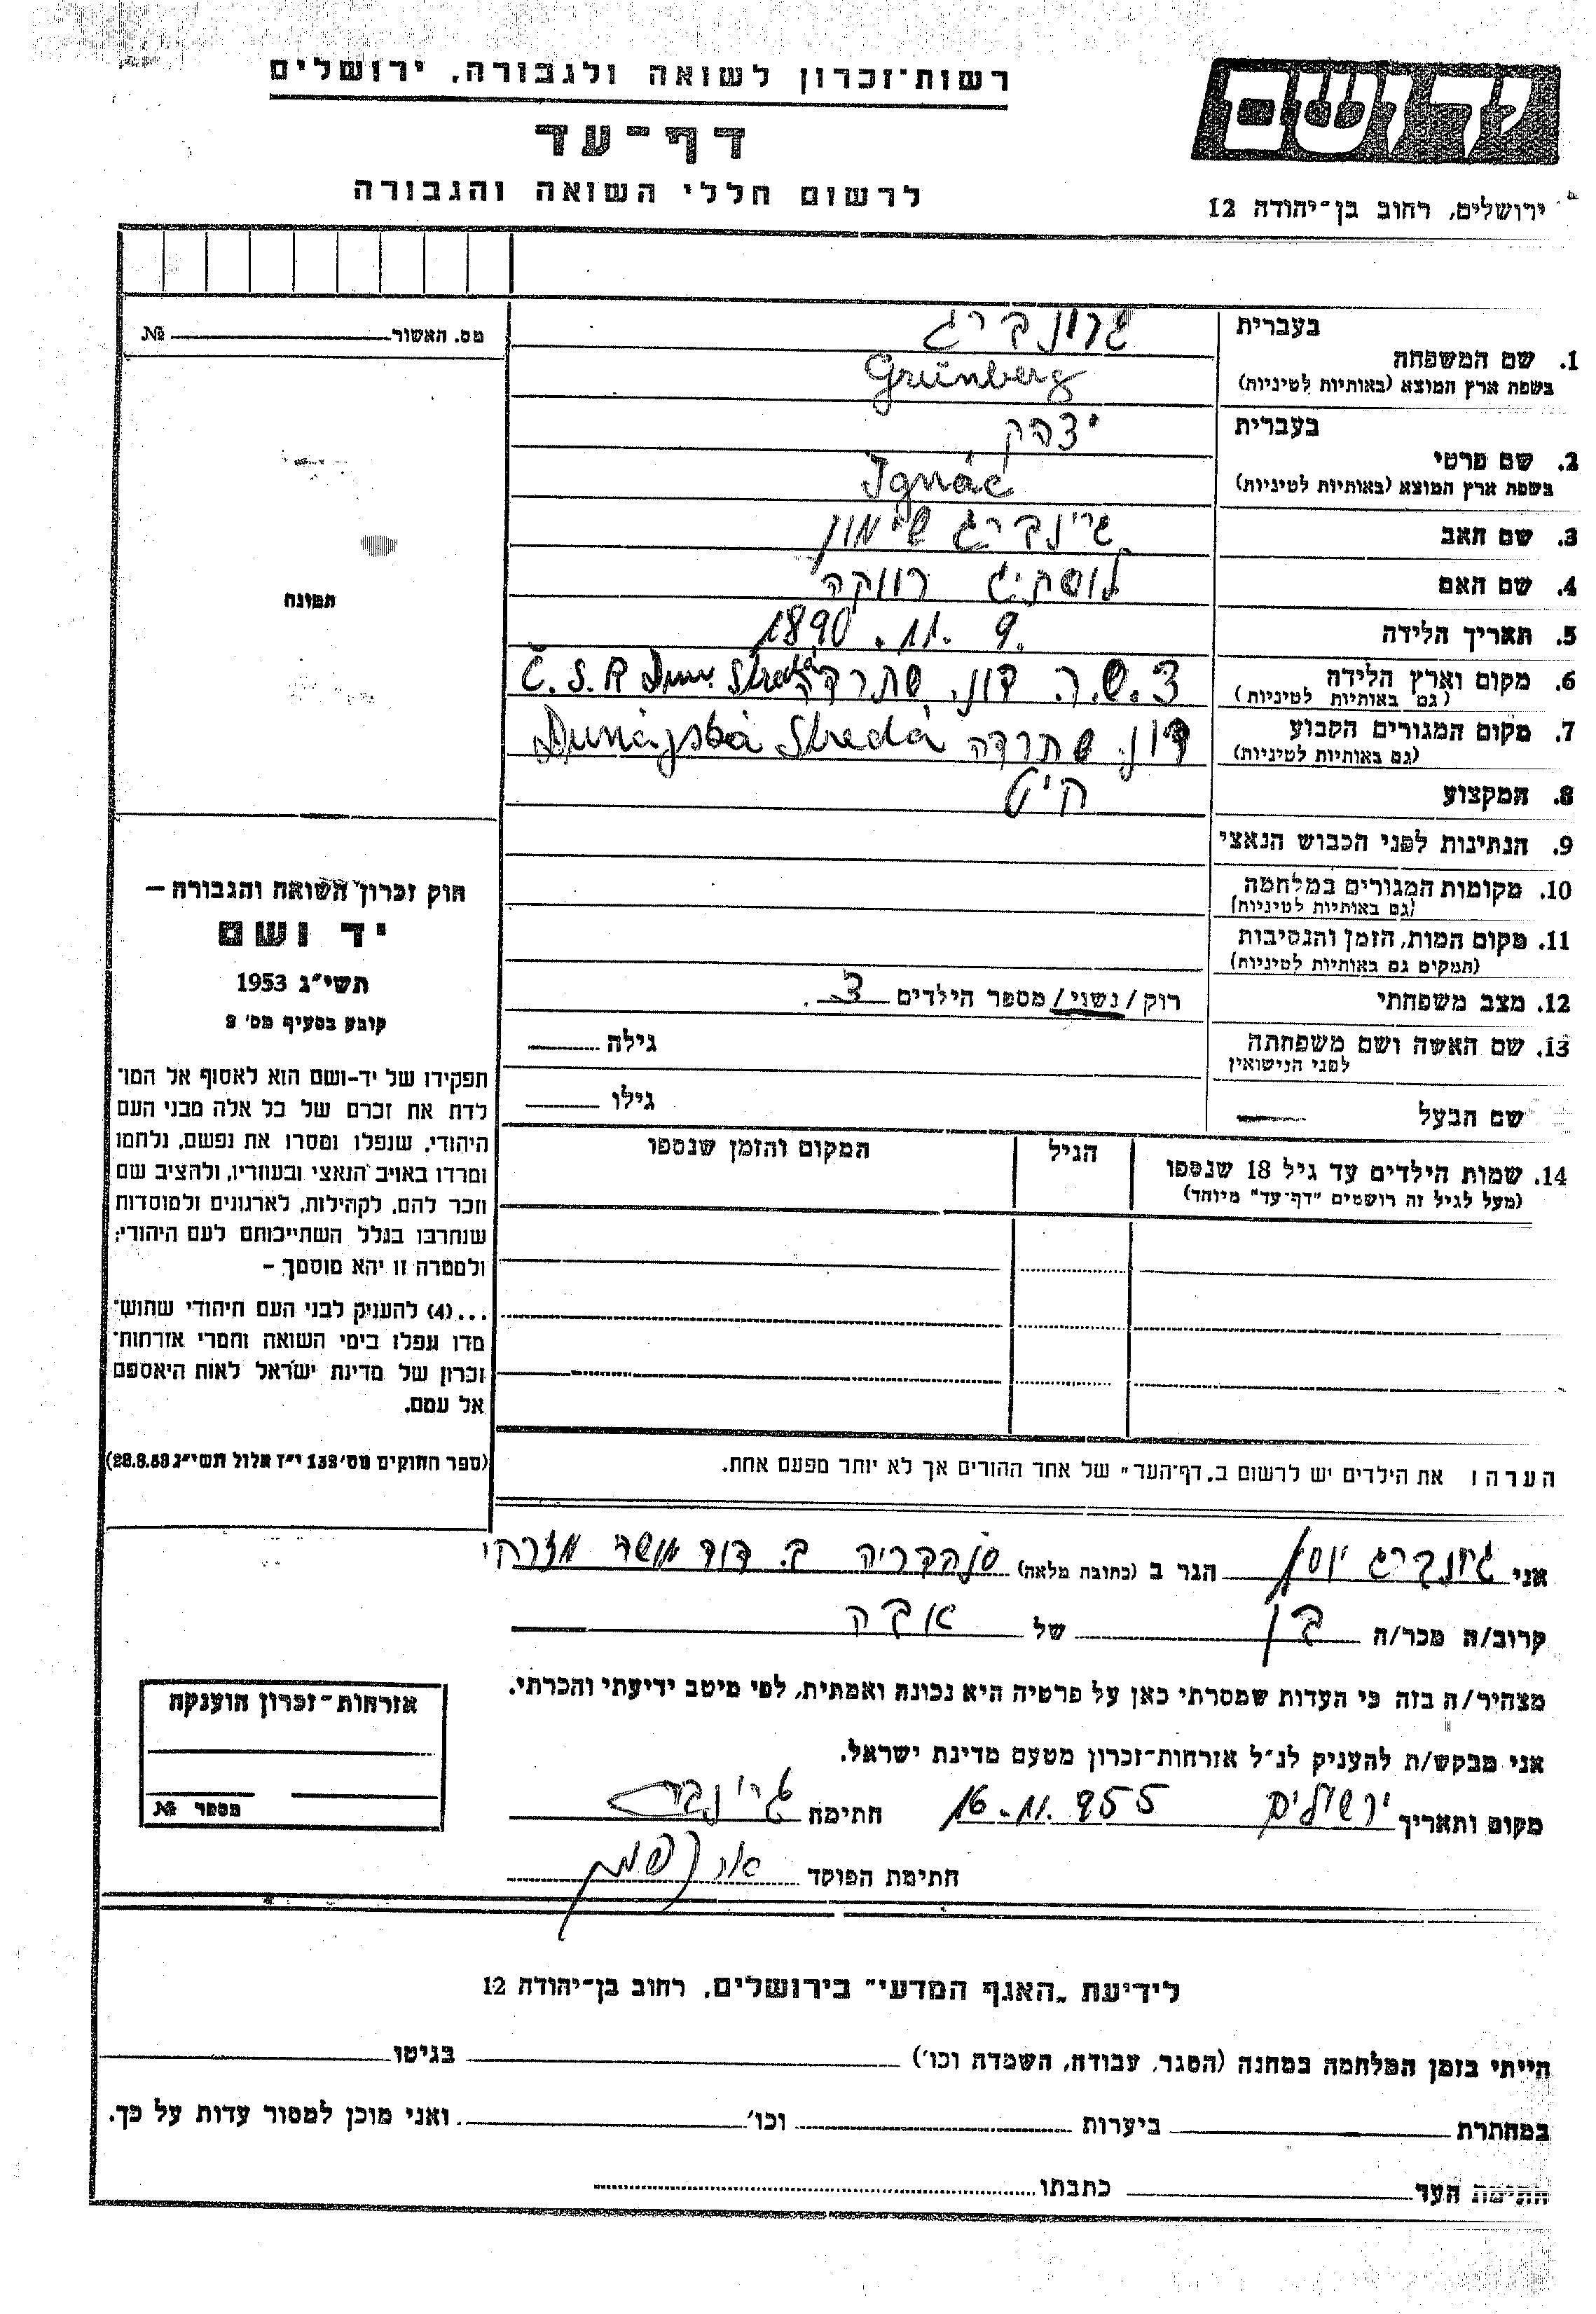 רשות-זכרון לשואה ולגבורה, ירושלים
דף-עד
לרשום חללי השואה והגבורה
יד ושם
ירושלים, רחוב בן-יהודה 12
מס. האשור № 
תמונה
בעברית גרונברג
1. שם המשפחה
בשפת ארץ המוצא (באותיות לטיניות) Grünberg
בעברית יצהק
2. שם פרטי
בשפת ארץ המוצא (באותיות לטיניות) Ignác
3. שם האב גרינברג שימון
4. שם האם רווקה
5. תאריך הלידה 9. 11. 1890
6. מקום וארץ הלידה צ.ש.ר. דונ. שתרדה Č.S.R Dun. Streda
(גם באותיות לטיניות)
7. מקום המגורים הקבוע דונ. שתרדה Dunajská Stredá
(גם באותיות לטיניות)
8. המקצוע חיט
9. הנתינות לפני הכבוש הנאצי
10. מקומות המגורים במלחמה
(גם באותיות לטיניות)
11. מקום המות, הזמן והנסיבות
(המקום גם באותיות לטיניות)
12. מצב משפחתי רוק / נשוי / מספר הילדים 3.
13. שם האשה ושם משפחתה גילה
לפני הנישואין
שם הבעל גילו
14. שמות הילדים עד גיל 18 שנספו הגיל המקום והזמן שנספו
(מעל לגיל זה רושמים "דף-עד" מיוחד)
הערה: את הילדים יש לרשום ב"דף-העד" של אחד ההורים אך לא יותר מפעם אחת.
חוק זכרון השואה והגבורה –
יד ושם
תשי"ג 1953
קובע בסעיף מס' 2
תפקידו של יד-ושם הוא לאסוף אל המו-
לדת את זכרם של כל אלה מבני העם
היהודי, שנפלו ומסרו את נפשם, נלחמו
ומרדו באויב הנאצי ובעוזריו, ולהציב שם
וזכר להם, לקהילות, לארגונים ולמוסדות
שנחרבו בגלל השתייכותם לעם היהודי;
ולמטרה זו יהא מוסמך –
...(4) להעניק לבני העם היהודי שהוש-
מדו ונפלו בימי השואה והמרי אזרחות-
זכרון של מדינת ישראל לאות היאספם
אל עמם.
(ספר החוקים מס' 132 י"ז אלול תשי"ג 28.8.53)
אני גרונברג יוסף הגר ב (כתובת מלאה) סנהדריה ב. דוד אשר מזרחי
קרוב/ה מכר/ה בן של אבה
מצהיר/ה בזה כי העדות שמסרתי כאן על פרטיה היא נכונה ואמתית, לפי מיטב ידיעתי והכרתי.
אני מבקש/ת להעניק לנ"ל אזרחות-זכרון מטעם מדינת ישראל.
מקום ותאריך ירשולים 16.11.955 חתימה
חתימת הפוקד
אזרחות-זכרון הוענקה
מספר №
לידיעת "האגף המדעי" בירושלים, רחוב בן-יהודה 12
הייתי בזמן המלחמה במחנה (הסגר, עבודה, השמדה וכו') בגיטו
במחתרת ביערות וכו' ואני מוכן למסור עדות על כך.
חתימת העד כתבתו